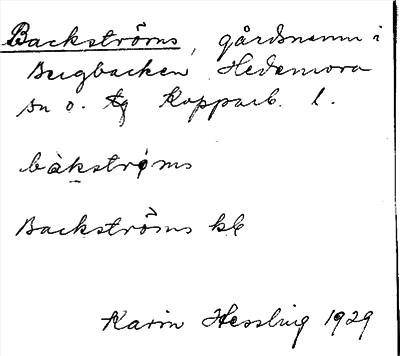 Backströms, gårdsnamn i
Bergbacken Hedemora
sn o. tg Kopparb. l.
bàkstrøms
Backströms kb
Karin Hessling 1929